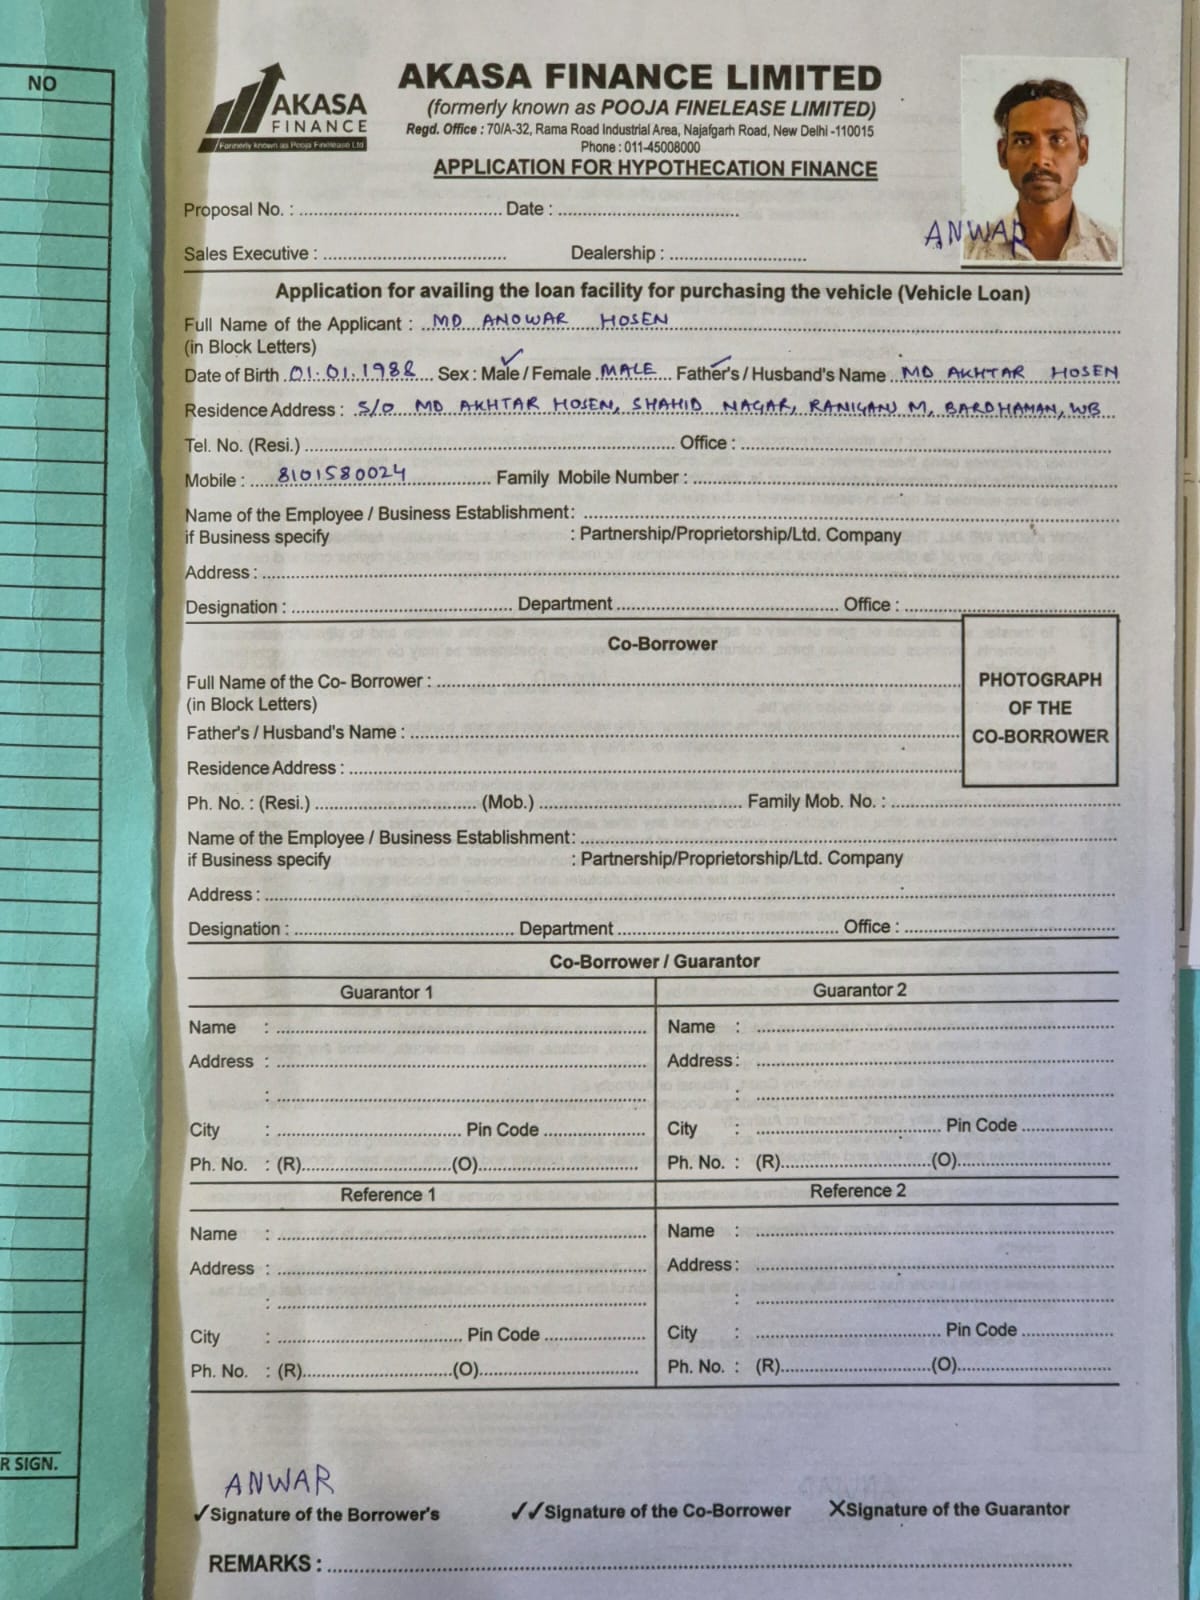 NO
AKASA
FINANCE
Formerly known as Pooja Finelease Ltd
AKASA FINANCE LIMITED
(formerly known as POOJA FINELEASE LIMITED)
Regd. Office : 70/A-32, Rama Road Industrial Area, Najafgarh Road, New Delhi -110015
Phone : 011-45008000
APPLICATION FOR HYPOTHECATION FINANCE
Proposal No. : ........ Date : ........
ANWAR
Sales Executive : ........ Dealership : ........
Application for availing the loan facility for purchasing the vehicle (Vehicle Loan)
Full Name of the Applicant : MD ANOWAR HOSEN
(in Block Letters)
Date of Birth 01.01.1988 Sex : Male / Female MALE Father's / Husband's Name MD AKHTAR HOSEN
Residence Address : S/O MD AKHTAR HOSEN, SHAHID NAGAR, RANIGANJ M, BARDHAMAN, WB
Tel. No. (Resi.) ........ Office : ........
Mobile : 8101580024 Family Mobile Number : ........
Name of the Employee / Business Establishment: ........
if Business specify : Partnership/Proprietorship/Ltd. Company
Address : ........
Designation : ........ Department ........ Office : ........
Co-Borrower
Full Name of the Co- Borrower : ........
(in Block Letters)
PHOTOGRAPH
OF THE
CO-BORROWER
Father's / Husband's Name : ........
Residence Address : ........
Ph. No. : (Resi.) ........ (Mob.) ........ Family Mob. No. : ........
Name of the Employee / Business Establishment: ........
if Business specify : Partnership/Proprietorship/Ltd. Company
Address : ........
Designation : ........ Department ........ Office : ........
Co-Borrower / Guarantor
Guarantor 1 Guarantor 2
Name : ........ Name : ........
Address : ........ Address : ........
: ........ : ........
City : ........ Pin Code ........ City : ........ Pin Code ........
Ph. No. : (R)........(O)........ Ph. No. : (R)........(O)........
Reference 1 Reference 2
Name : ........ Name : ........
Address : ........ Address : ........
: ........ : ........
City : ........ Pin Code ........ City : ........ Pin Code ........
Ph. No. : (R)........(O)........ Ph. No. : (R)........(O)........
R SIGN.
ANWAR
✓Signature of the Borrower's ✓✓Signature of the Co-Borrower XSignature of the Guarantor
REMARKS : ........